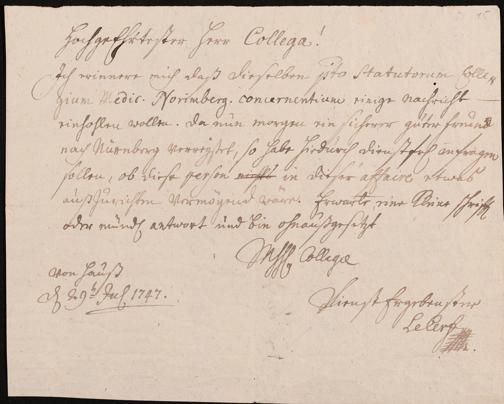 Hochgeehrtester Herr Collega!
Ich erinnere mich daß dieselben pto Statutorum Colle
gium Medic. Norimberg. concernentium einige nachricht
einholen wollen. Da nun morgen ein sicherer guter freund
nach Nürnberg verreyset, so habe hiedurch dienstl. anfragen
sollen, ob diese person nicht in dieser affaire etwas
außzurichten vermögend wäre. Erwarte eine kleine schrifft
oder mündl. antwort und bin ohnaußgesetzt
Collegæ
von Hauß
d. 29t Jul. 1747.
Dienst Ergebenster
LeCerf